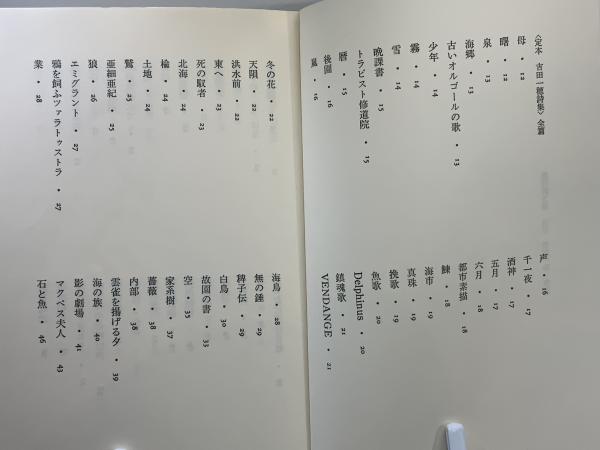 〈定本 吉田一穂詩集〉全篇
母・12
曙・12
泉・13
海郷・13
古いオルゴールの歌・13
少年・14
霧・14
雪・14
晩課書・15
トラピスト修道院・15
暦・15
後園・16
嵐・16
声・16
千一夜・17
酒神・17
五月・17
六月・18
都市素描・18
鰊・18
海市・19
真珠・19
挽歌・19
魚歌・20
Delphinus・20
鎮魂歌・21
VENDANGE・21
冬の花・22
天隕・22
洪水前・22
東へ・23
死の馭者・23
北海・24
楡・24
土地・24
鷲・25
亜細亜紀・25
狼・26
エミグラント・27
鴉を飼ふツァラトゥストラ・27
業・28
海鳥・28
無の錘・29
稗子伝・29
白鳥・30
故園の書・33
空・35
家系樹・37
薔薇・38
内部・38
雲雀を揚げる夕・39
海の族・40
影の劇場・41
マクベス夫人・43
石と魚・46